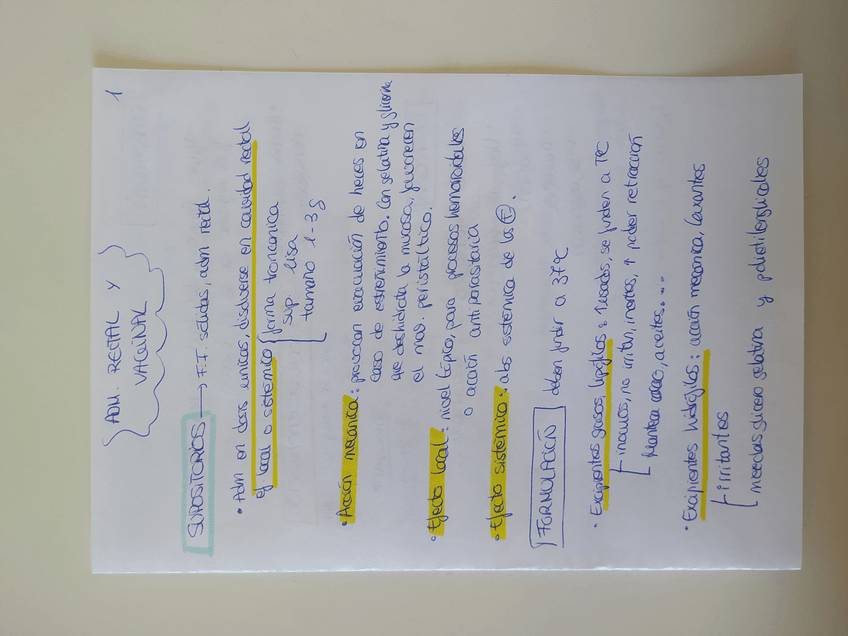 1
ADM. RECTAL Y
VAGINAL
SUPOSITORIOS → F.F. sólidas, adm rectal.
• Adm en dosis unicas, disolverse en cavidad rectal
ef local o sistémico
forma troncanica
sup lisa
tamaño 1-3 g
• Acción mecanica: provocan evacuación de heces en
caso de estreñimiento. Con gelatina y glicerina
que deshidrata la mucosa, favorecen
el mov. peristáltico.
• Efecto local: nivel tópico, para procesos hemorroidales
o acción antiparasitaria
• Efecto sistémico: abs sistemica de los
FORMULACIÓN deben fundir a 37ºC
• Excipientes grasos, lipófilos: + usados, se funden a TºC
inocuos, no irritan, inertes, ↑ poder retracción
manteca cacao, aceites....
• Excipientes hidrófilos: acción mecanica, laxantes
irritantes
mezclas glicero gelatina y polietilenglicoles